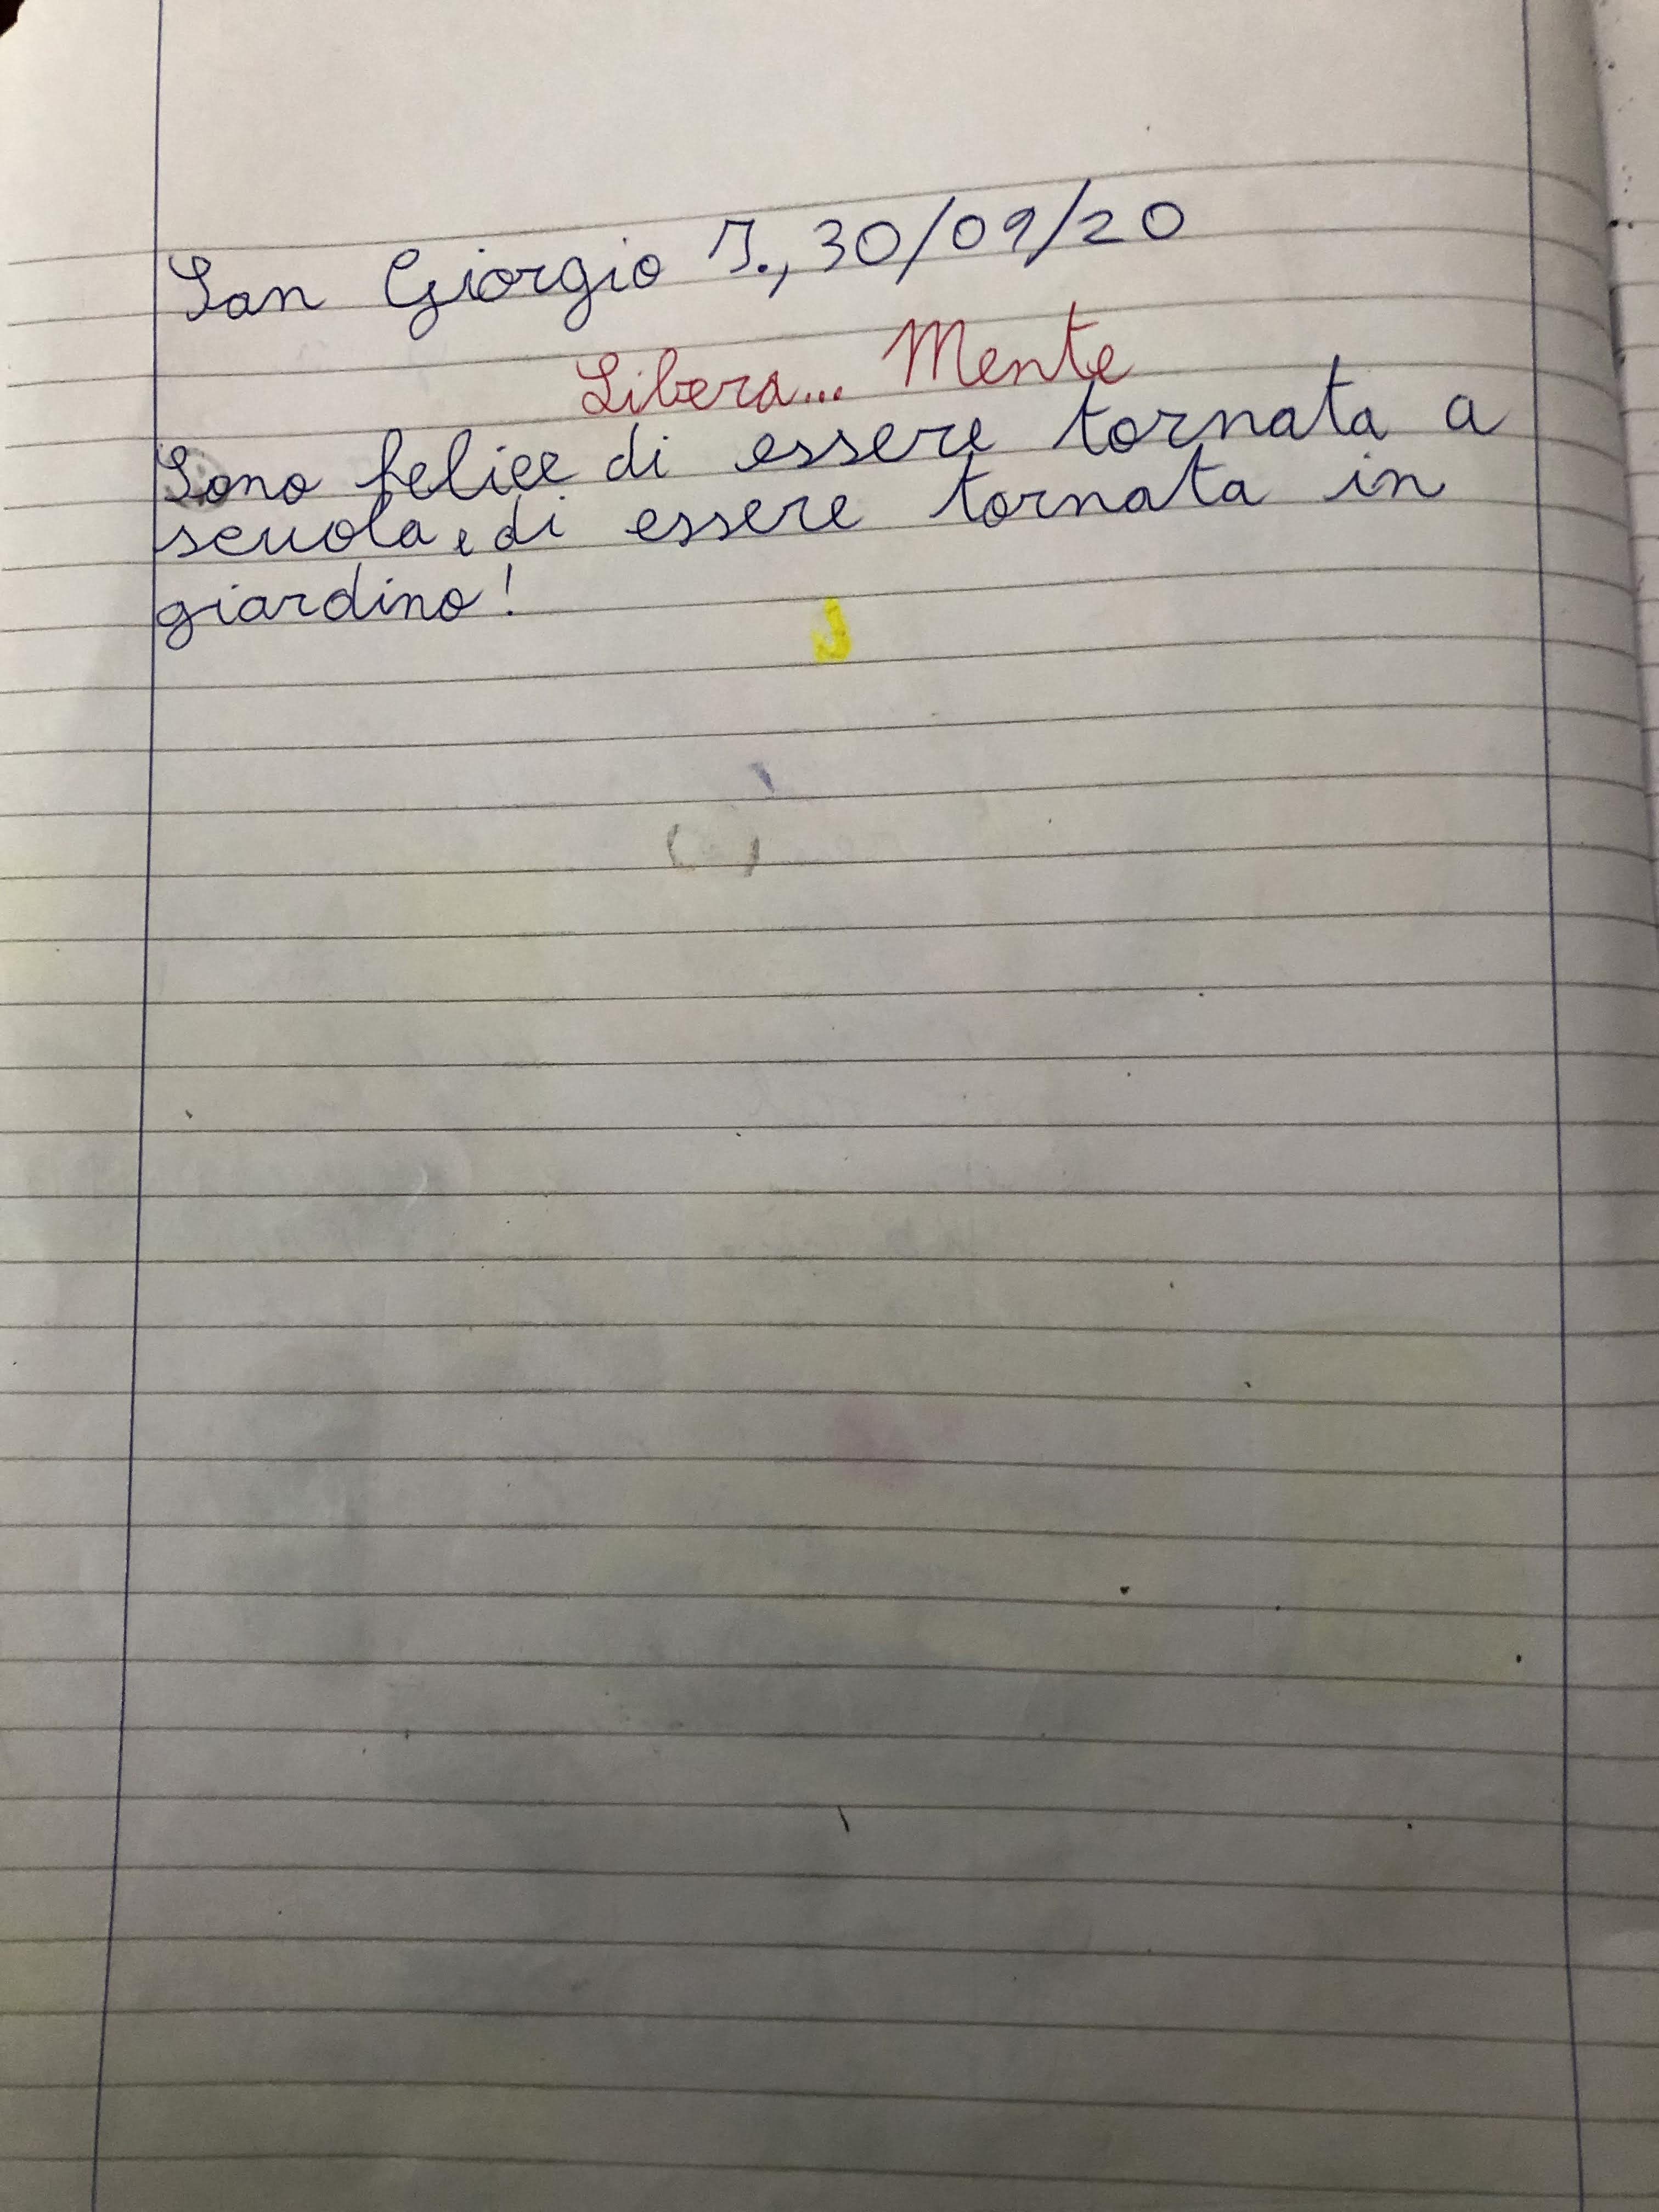 San Giorgio J., 30/09/20
Libera... Mente
Sono felice di essere tornata a
scuola e di essere tornata in
giardino!